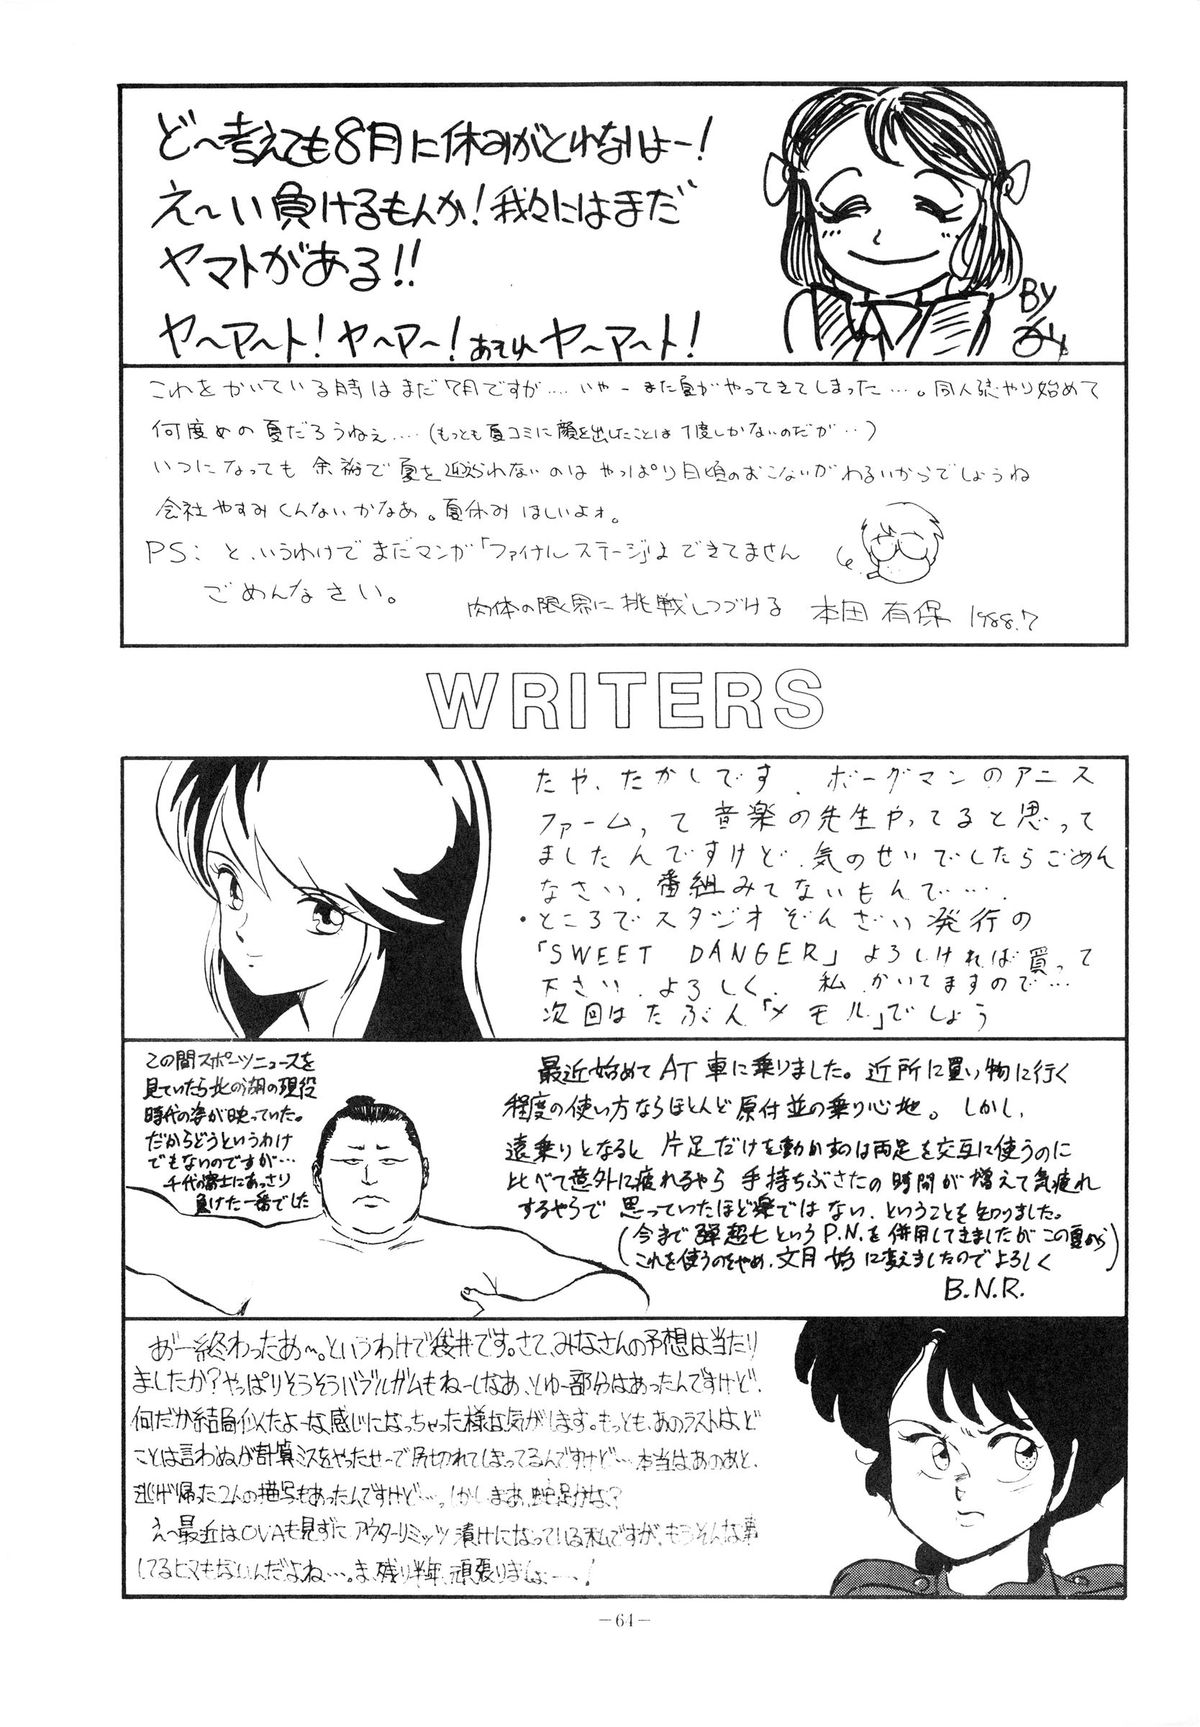 ど〜考えても8月に休みがとれないよー!
え〜い負けるもんか!我々にはまだ
ヤマトがある!!
ヤ〜ア〜ト!ヤ〜ア〜! ヤ〜ア〜ト!
BY
これをかいている時はまだ7月ですが‥‥いやーまた夏がやってきてしまった‥‥。同人誌やり始めて
何度めの夏だろうねぇ‥‥(もっとも夏コミに顔を出したことは1度しかないのだが‥)
いつになっても余裕で夏を迎えられないのはやっぱり日頃のおこないがわるいからでしょうね
会社やすみくんないかなあ。夏休みほしいよォ。
PS:と、いうわけでまだマンガ「ファイナルステージ」はできてません
ごめんなさい。
肉体の限界に挑戦しつづける 本田有保 1988.7
WRITERS
たや、たかしです。ボーグマンのアニス
ファームって音楽の先生やってると思って
ましたんですけど、気のせいでしたらごめん
なさい。番組みてないもんで‥‥.
・ところでスタジオぞんざい発行の
「SWEET DANGER」よろしければ買って
下さい。よろしく。私、かいてますので‥‥
次回はたぶん「メモル」でしょう
この間スポーツニュースを
見ていたら北の湖の現役
時代の姿が映っていた。
だからどうというわけ
でもないのですが‥‥
千代の富士にあっさり
負けた一番でした
最近始めてAT車に乗りました。近所に買い物に行く
程度の使い方ならほとんど原付並の乗り心地。しかし、
遠乗りとなると片足だけを動かすのは両足を交互に使うのに
比べて意外に疲れるやら手持ちぶさたの時間が増えて気疲れ
するやらで思っていたほど楽ではない、ということを知りました。
(今まで弾超七というP.N.を併用してきましたがこの夏から
これを使うのをやめ、文月始に変えましたのでよろしく)
B.N.R.
おー終わったあ〜。というわけで袋井です。さて、みなさんの予想は当たり
ましたか?やっぱりそうそうバブルガムもねーしなあ、とゆー部分はあったんですけど、
何だか結局似たよーな感じになっちゃった様な気がします。もっとも、あのラストは、ど
ことは言わぬが計算ミスをやったせーで尻切れてしまってるんですけど‥‥本当はあのあと、
逃げ帰った2人の描写もあったんですけど‥‥。しかしまあ、蛇足かな?
え〜最近はOVAも見ずにアウターリミッツ漬けになっている私ですが、もうそんな事
してるヒマもないんだよね‥‥。ま、残り半年、頑張りましょーー!
—64—